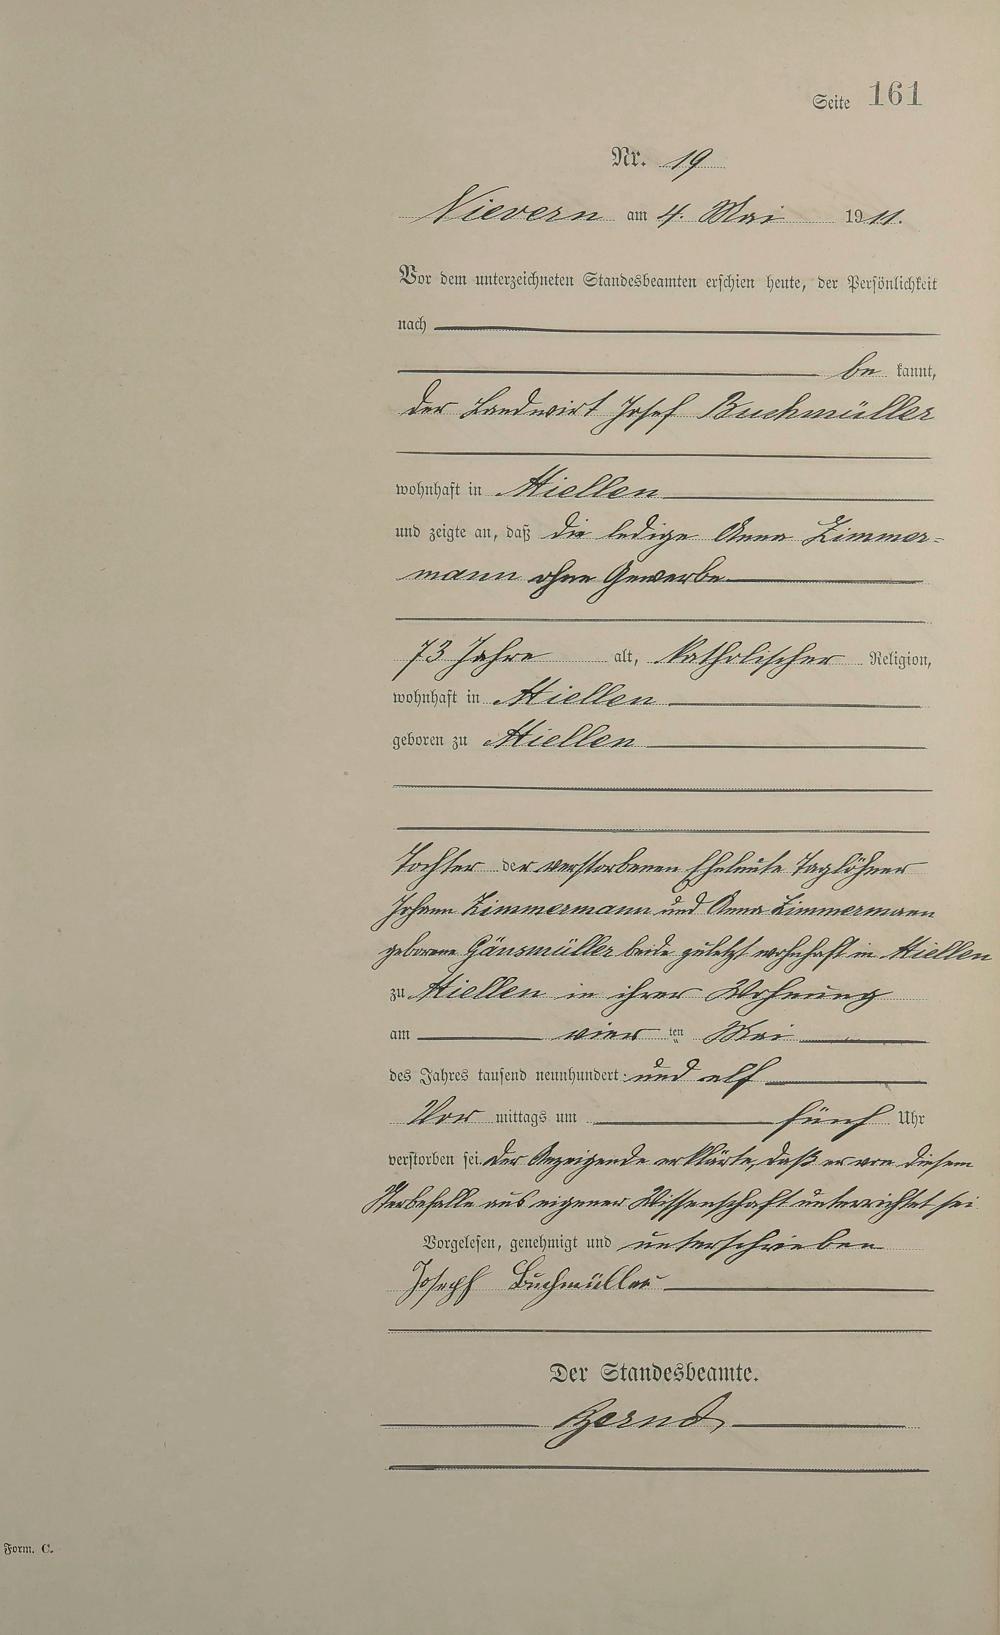 Seite 161
Nr. 19
Nievern am 4. Mai 1911.
Vor dem unterzeichneten Standesbeamten erschien heute, der Persönlichkeit
nach
be kannt,
der Landwirt Josef Buchmüller
wohnhaft in Miellen
und zeigte an, daß die ledige Anna Zimmer=
mann ohne Gewerbe
73 Jahre alt, katholischer Religion,
wohnhaft in Miellen
geboren zu Miellen
Tochter der verstorbenen Eheleute Taglöhner
Johann Zimmermann und Anna Zimmermann
geborene Gänsmüller beide zuletzt wohnhaft in Miellen
zu Miellen in ihrer Wohnung
am vier ten Mai
des Jahres tausend neunhundert und elf
Vor mittags um fünf Uhr
verstorben sei. Der Anzeigende erklärte, daß er von diesem
Sterbefalle aus eigener Wissenschaft unterrichtet sei
Vorgelesen, genehmigt und unterschrieben
Joseph Buchmüller
Der Standesbeamte.
Form. C.